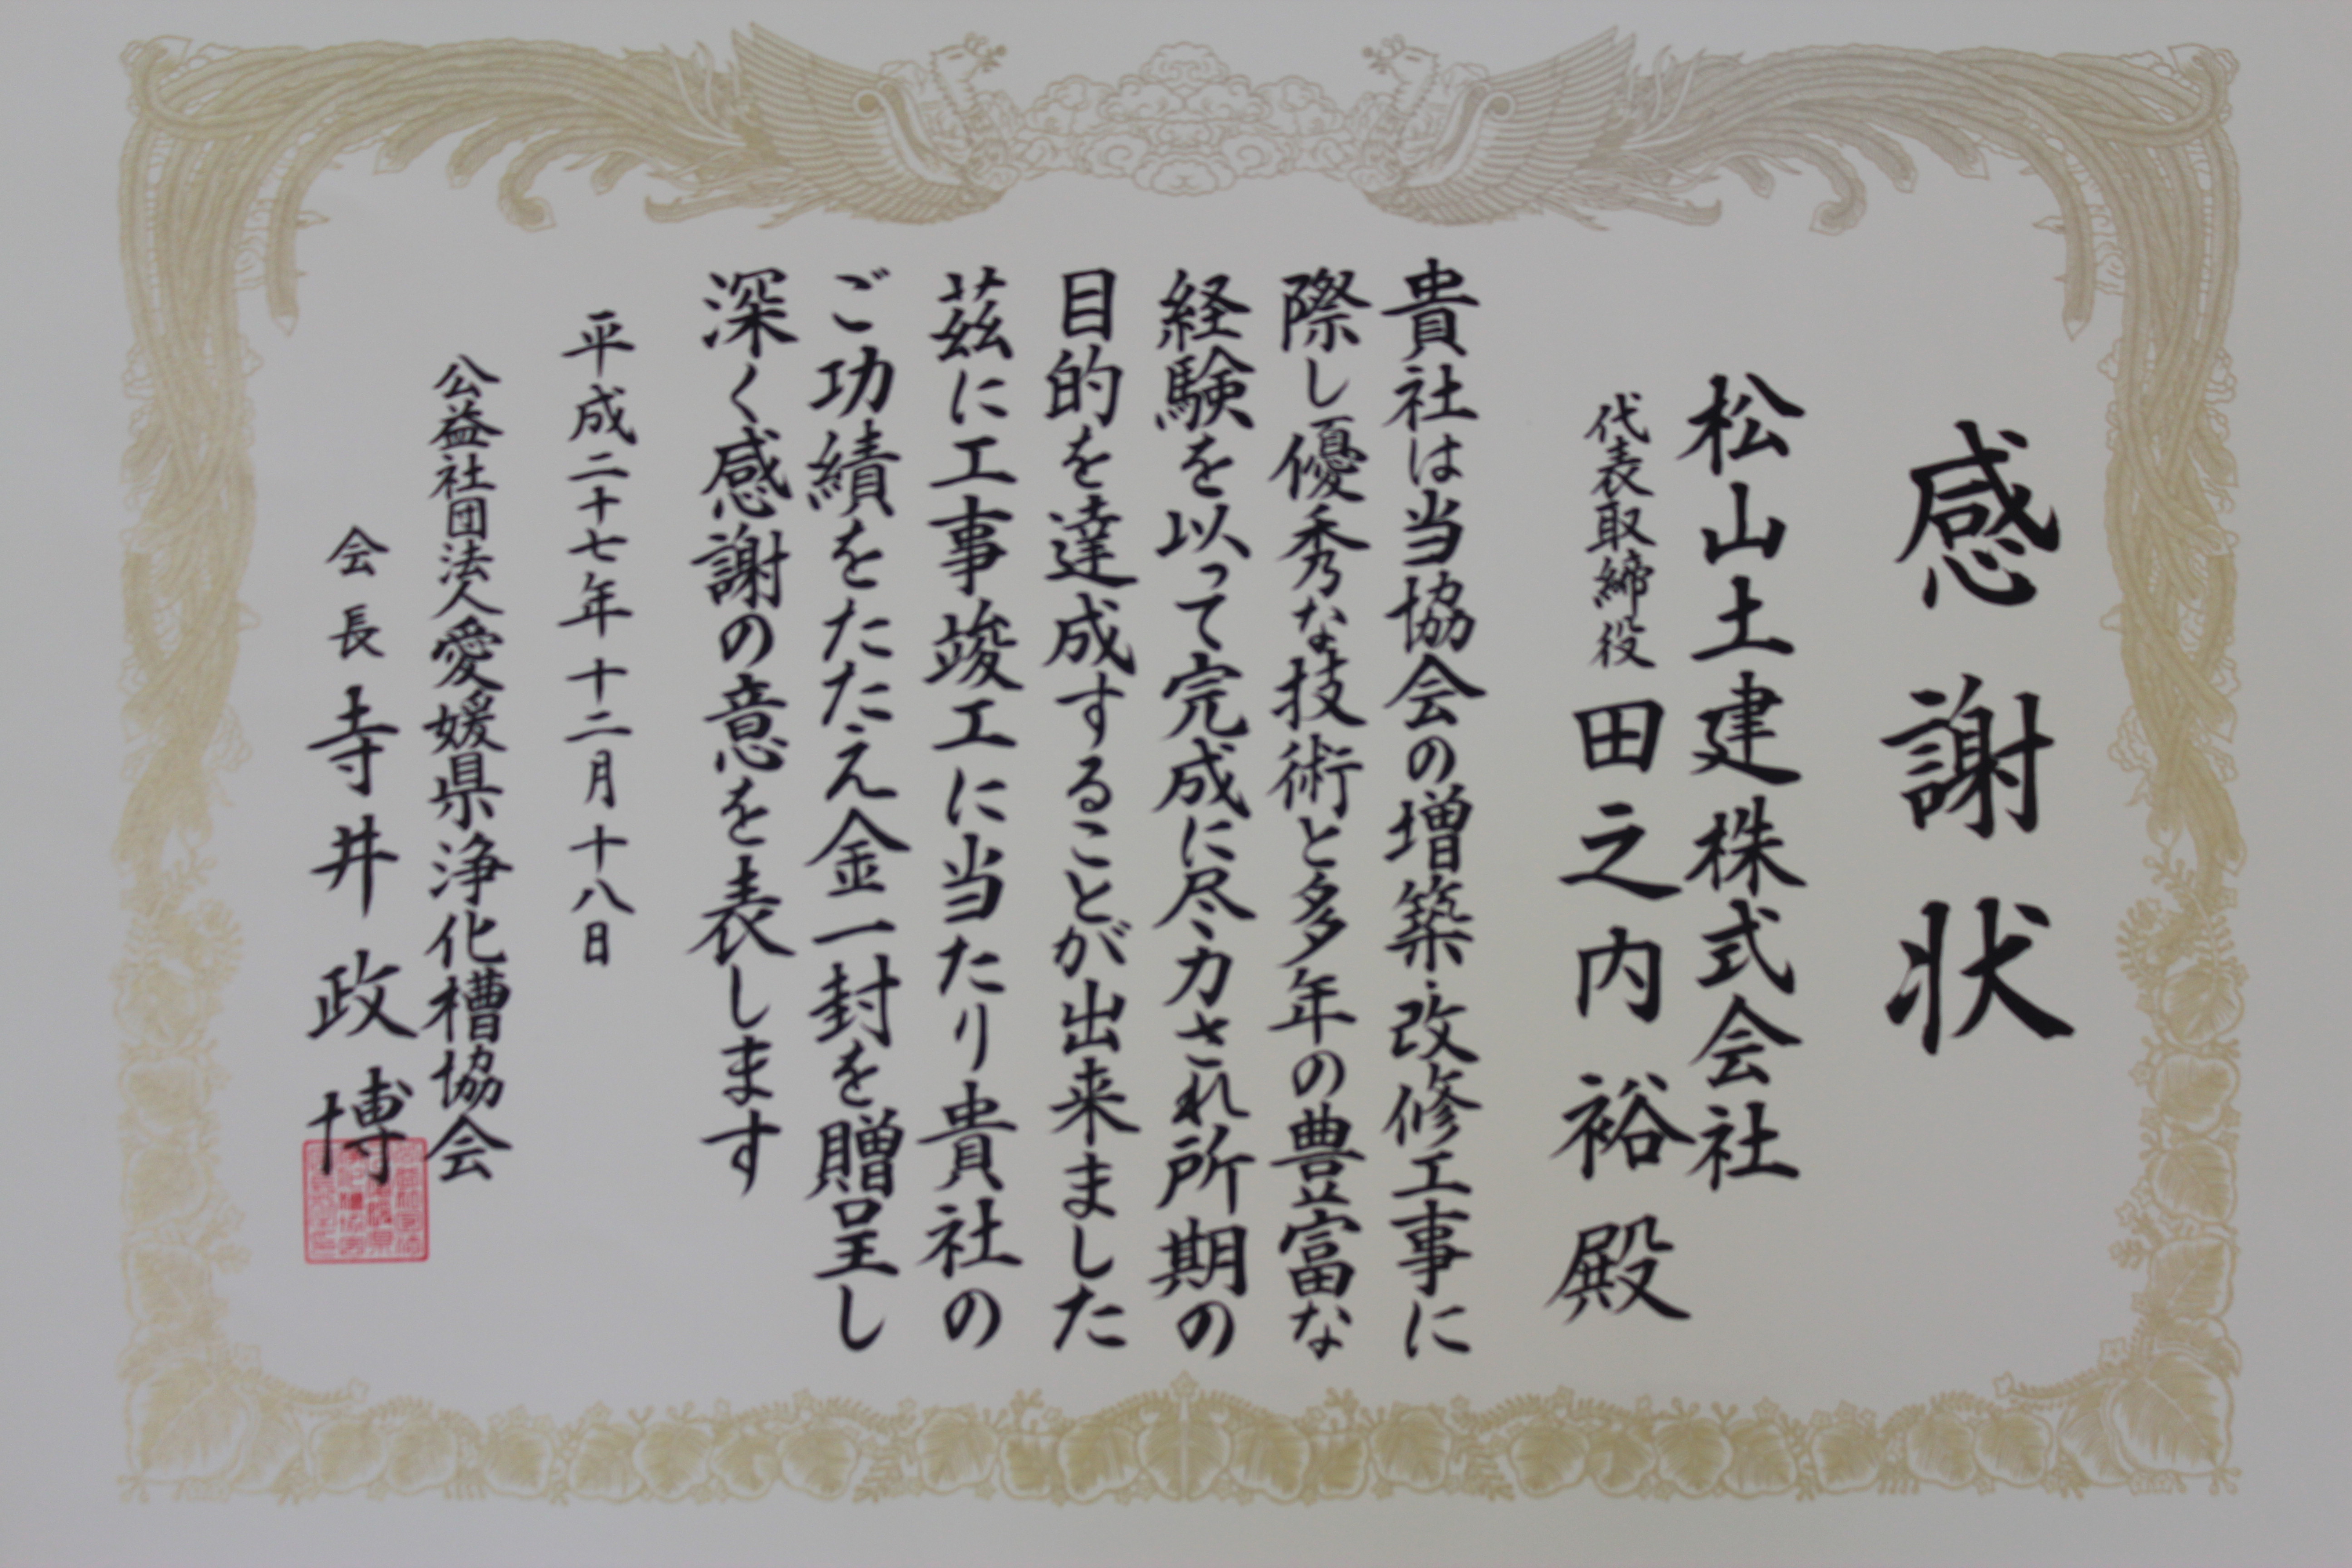 感謝状
松山土建株式会社
代表取締役 田之内 裕 殿
貴社は当協会の増築・改修工事に
際し優秀な技術と多年の豊富な
経験を以って完成に尽力され所期の
目的を達成することが出来ました
茲に工事竣工に当たり貴社の
ご功績をたたえ金一封を贈呈し
深く感謝の意を表します
平成二十七年十二月十八日
公益社団法人愛媛県浄化槽協会
会長 寺井政博